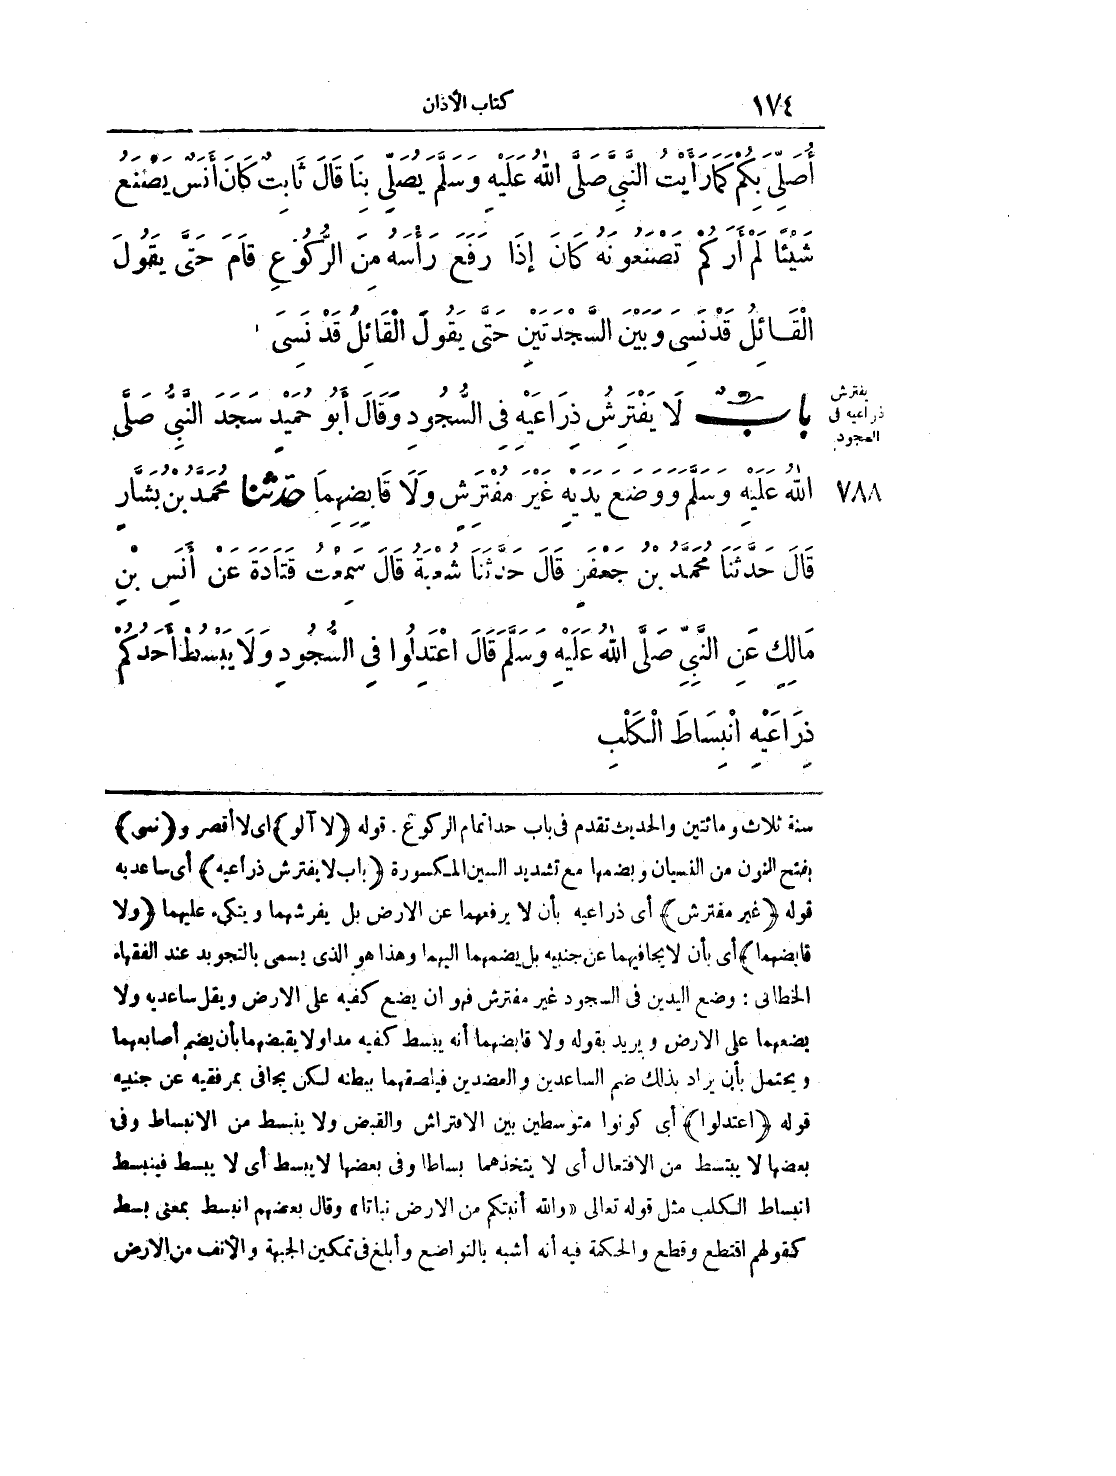 ١٧٤ كتاب الأذان
أُصَلِّيَ بِكُمْ كَمَا رَأَيْتُ النَّبِيَّ صَلَّى اللهُ عَلَيْهِ وَسَلَّمَ يُصَلِّي بِنَا قَالَ ثَابِتٌ كَانَ أَنَسٌ يَصْنَعُ
شَيْئًا لَمْ أَرَكُمْ تَصْنَعُونَهُ كَانَ إِذَا رَفَعَ رَأْسَهُ مِنَ الرُّكُوعِ قَامَ حَتَّى يَقُولَ
الْقَائِلُ قَدْ نَسِيَ وَبَيْنَ السَّجْدَتَيْنِ حَتَّى يَقُولَ الْقَائِلُ قَدْ نَسِيَ
يفترش
ذراعيه فى
السجود
بَابٌ لَا يَفْتَرِشُ ذِرَاعَيْهِ فِي السُّجُودِ وَقَالَ أَبُو حُمَيْدٍ سَجَدَ النَّبِيُّ صَلَّى
٧٨٨ اللهُ عَلَيْهِ وَسَلَّمَ وَوَضَعَ يَدَيْهِ غَيْرَ مُفْتَرِشٍ وَلَا قَابِضِهِمَا حَدَّثَنَا مُحَمَّدُ بْنُ بَشَّارٍ
قَالَ حَدَّثَنَا مُحَمَّدُ بْنُ جَعْفَرٍ قَالَ حَدَّثَنَا شُعْبَةُ قَالَ سَمِعْتُ قَتَادَةَ عَنْ أَنَسِ بْنِ
مَالِكٍ عَنِ النَّبِيِّ صَلَّى اللهُ عَلَيْهِ وَسَلَّمَ قَالَ اعْتَدِلُوا فِي السُّجُودِ وَلَا يَبْسُطْ أَحَدُكُمْ
ذِرَاعَيْهِ انْبِسَاطَ الْكَلْبِ
سنة ثلاث ومائتين والحديث تقدم فى باب حد اتمام الركوع . قوله ﴿لا آلو﴾ اى لا أقصر و﴿نسى﴾
بفتح النون من النسيان وبضمها مع تشديد السين المكسورة ﴿باب لا يفترش ذراعيه﴾ أى ساعديه
قوله ﴿غير مفترش﴾ أى ذراعيه بأن لا يرفعهما عن الارض بل يفرشهما ويتكىء عليهما ﴿ولا
قابضهما﴾ أى بأن لا يجافيهما عن جنبيه بل يضمهما اليهما وهذا هو الذى يسمى بالتجويد عند الفقهاء
الخطابى : وضع اليدين فى السجود غير مفترش فهو ان يضع كفيه على الارض ويقل ساعديه ولا
يضعهما على الارض ويريد بقوله ولا قابضهما أنه يبسط كفيه مدا ولا يقبضهما بأن يضم أصابعهما
ويحتمل بأن يراد بذلك ضم الساعدين والعضدين فيلصقهما ببطنه لكن يجافى بمرفقيه عن جنبيه
قوله ﴿اعتدلوا﴾ أى كونوا متوسطين بين الافتراش والقبض ولا ينبسط من الانبساط وفى
بعضها لا يبتسط من الافتعال أى لا يتخذهما بساطا وفى بعضها لا يبسط أى لا يبسط فينبسط
انبساط الكلب مثل قوله تعالى «والله أنبتكم من الارض نباتا» وقال بعضهم انبسط بمعنى بسط
كقولهم اقتطع وقطع والحكمة فيه أنه أشبه بالتواضع وأبلغ فى تمكين الجبهة والأنف من الارض